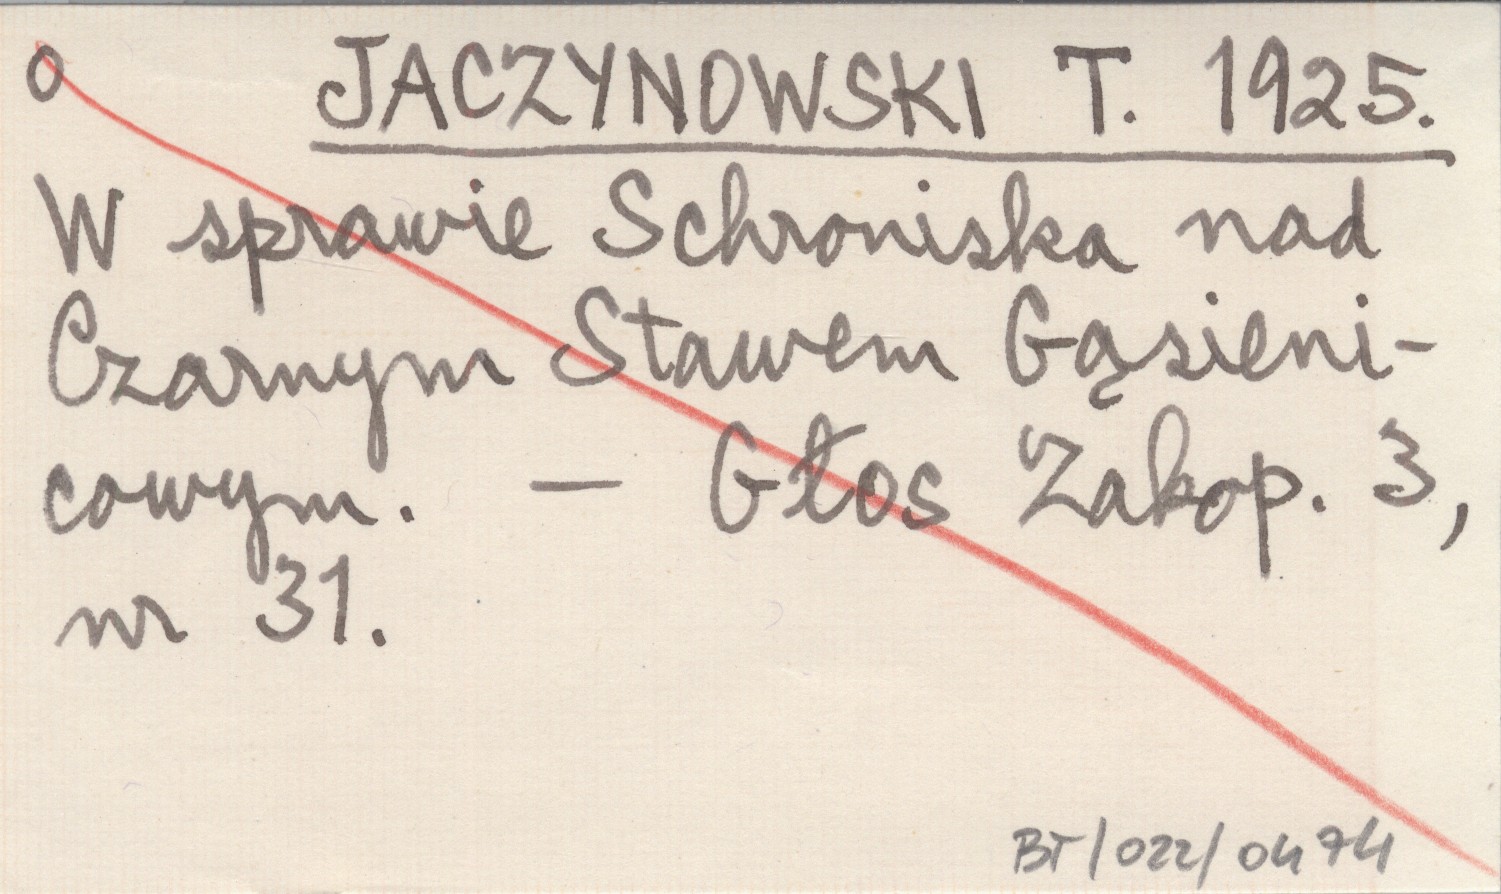 o JACZYNOWSKI T. 1925.
W sprawie Schroniska nad
Czarnym Stawem Gąsieni-
cowym. — Głos Zakop. 3,
nr 31.
BT/022/0474